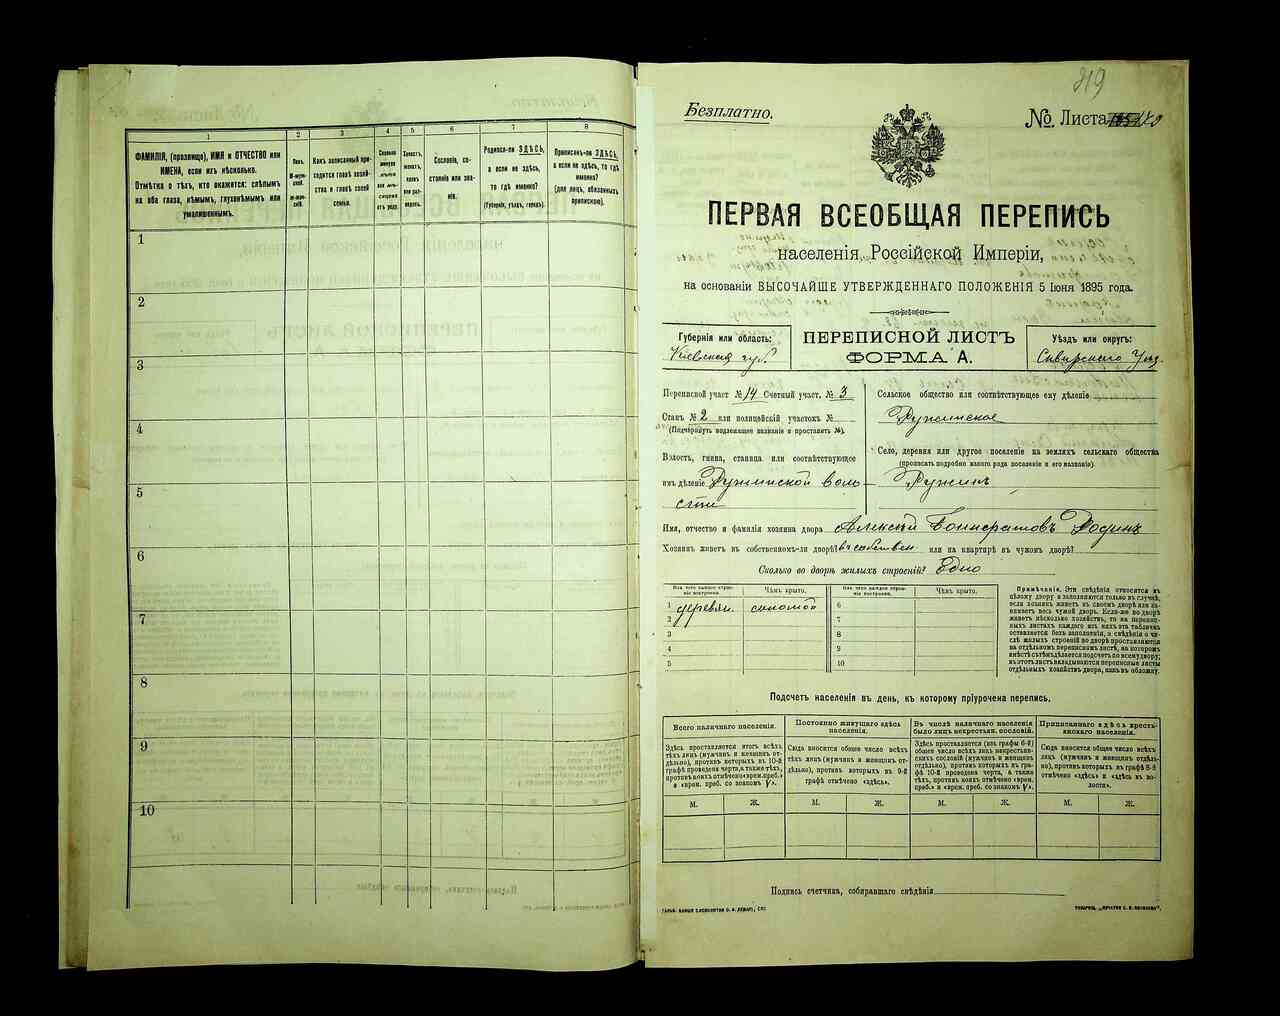 1
2
3
4
5
6
7
8
ФАМИЛІЯ, (прозвище), ИМЯ и ОТЧЕСТВО или
ИМЕНА, если ихъ нѣсколько.
Отмѣтка о тѣхъ, кто окажется: слѣпымъ
на оба глаза, нѣмымъ, глухонѣмымъ или
умалишеннымъ.
Полъ.
М-муж-
ской.
Ж-жен-
скій.
Какъ записанный при-
ходится главѣ хозяй-
ства и главѣ своей
семьи.
Сколько
минуло
лѣтъ
или мѣ-
сяцевъ
отъ роду.
Холостъ,
женатъ,
вдовъ
или раз-
веденъ.
Сословіе, со-
стояніе или зва-
ніе.
Родился-ли ЗДѢСЬ,
а если не здѣсь,
то гдѣ именно?
(Губернія, уѣздъ, городъ).
Приписанъ-ли ЗДѢСЬ,
а если не здѣсь, то гдѣ
именно?
(для лицъ, обязанныхъ
припискою).
1
2
3
4
5
6
7
8
9
10
319
Безплатно.
№ Листа
ПЕРВАЯ ВСЕОБЩАЯ ПЕРЕПИСЬ
населенія Россійской Имперіи,
на основаніи ВЫСОЧАЙШЕ УТВЕРЖДЕННАГО ПОЛОЖЕНІЯ 5 Іюня 1895 года.
Губернія или область:
Кіевская губ.
ПЕРЕПИСНОЙ ЛИСТЪ
ФОРМА А.
Уѣздъ или округъ:
Сквирскаго Уѣз.
Переписной участ. № 14 Счетный участ. № 3
Станъ № 2 или полицейскій участокъ №
(Подчеркнуть надлежащее названіе и проставить №).
Волость, гмина, станица или соотвѣтствующее
имъ дѣленіе Ружинской воло
сти
Сельское общество или соотвѣтствующее ему дѣленіе
Ружинское
Село, деревня или другое поселеніе на земляхъ сельскаго общества
(прописать подробно какого рода поселеніе и его названіе).
Ружинъ
Имя, отчество и фамилія хозяина двора Алексій
Хозяинъ живетъ въ собственномъ-ли дворѣ? въ собствен. или на квартирѣ въ чужомъ дворѣ?
Сколько во дворѣ жилыхъ строеній? Едно
Изъ чего каждое строе-
ніе построено.
Чѣмъ крыто.
Изъ чего каждое строе-
ніе построено.
Чѣмъ крыто.
1 деревян. соломой 6
2 7
3 8
4 9
5 10
Примѣчаніе. Эти свѣдѣнія относятся къ
цѣлому двору и заполняются только въ случаѣ,
если хозяинъ живетъ въ своемъ дворѣ или за-
нимаетъ весь чужой дворъ. Если-же во дворѣ
живетъ нѣсколько хозяйствъ, то на перепис-
ныхъ листахъ каждаго изъ нихъ эта табличка
оставляется безъ заполненія, а свѣдѣнія о чи-
слѣ жилыхъ строеній во дворѣ проставляются
на отдѣльномъ переписномъ листѣ, на которомъ
вмѣстѣ съ тѣмъ дѣлается подсчетъ по всему двору;
въ этотъ листъ вкладываются переписные листы
отдѣльныхъ хозяйствъ двора, какъ въ обложку.
Подсчетъ населенія въ день, къ которому пріурочена перепись.
Всего наличнаго населенія.
Постоянно живущаго здѣсь
населенія.
Въ числѣ наличнаго населенія
было лицъ некрестьян. сословій.
Приписаннаго здѣсь кресть-
янскаго населенія.
Здѣсь проставляется итогъ всѣхъ
лицъ (мужчинъ и женщинъ от-
дѣльно), противъ которыхъ въ 10-й
графѣ проведена черта, а также тѣхъ,
противъ коихъ отмѣчено «врем. преб.»
и «врем. преб. со знакомъ V».
Сюда вносится общее число всѣхъ
тѣхъ лицъ (мужчинъ и женщинъ от-
дѣльно), противъ которыхъ въ 9-й
графѣ отмѣчено «здѣсь».
Здѣсь проставляется (изъ графы 6-й)
общее число всѣхъ лицъ некрестьян-
скихъ сословій (мужчинъ и женщинъ
отдѣльно), противъ которыхъ въ гра-
фѣ 10-й проведена черта, а также
тѣхъ, противъ коихъ отмѣчено «врем.
преб.» и «врем. преб. со знакомъ V».
Сюда вносится общее число всѣхъ
лицъ (мужчинъ и женщинъ отдѣль-
но), противъ которыхъ въ графѣ 8-й
отмѣчено «здѣсь» и «здѣсь въ во-
лости».
М. Ж. М. Ж. М. Ж. М. Ж.
Подпись счетчика, собиравшаго свѣдѣнія